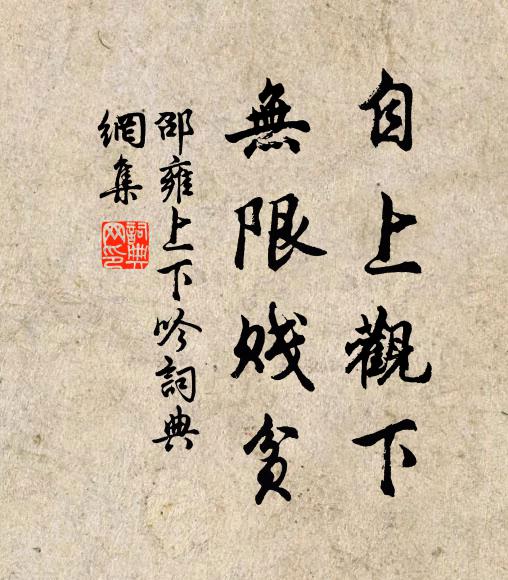 自上觀下
無限賤貧
邵雍上下吟詞典
網集
詞典
网印